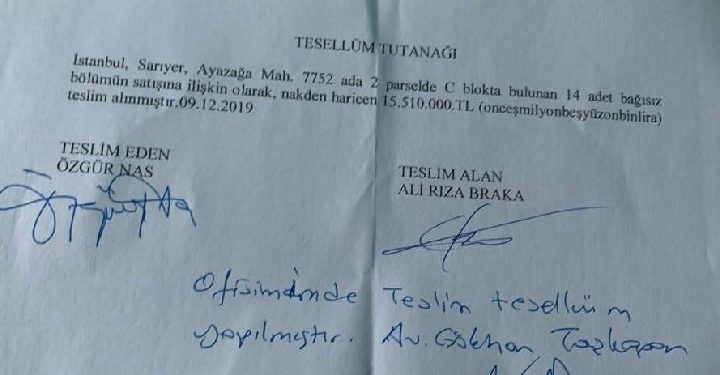 TESELLÜM TUTANAĞI
İstanbul, Sarıyer, Ayazağa Mah. 7752 ada 2 parselde C blokta bulunan 14 adet bağısız
bölümün satışına ilişkin olarak, nakden haricen 15.510.000.TL (onceşmilyonbeşyüzonbinlira)
teslim alınmıştır.09.12.2019
TESLİM EDEN
ÖZGÜR NAS
TESLİM ALAN
ALİ RIZA BRAKA
Ofisimde Teslim tesellüm
yapılmıştır. Av. Gökhan